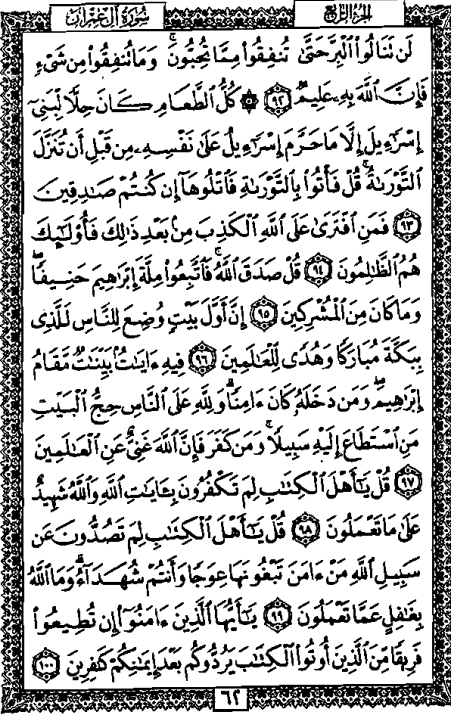 سُورَةُ آلِ عِمْرَانَ
الجزء الرابع
لَن تَنَالُوا۟ ٱلْبِرَّ حَتَّىٰ تُنفِقُوا۟ مِمَّا تُحِبُّونَ ۚ وَمَا تُنفِقُوا۟ مِن شَىْءٍ
فَإِنَّ ٱللَّهَ بِهِۦ عَلِيمٌ ﴿٩٢﴾ ۞ كُلُّ ٱلطَّعَامِ كَانَ حِلًّا لِّبَنِىٓ
إِسْرَٰٓءِيلَ إِلَّا مَا حَرَّمَ إِسْرَٰٓءِيلُ عَلَىٰ نَفْسِهِۦ مِن قَبْلِ أَن تُنَزَّلَ
ٱلتَّوْرَىٰةُ ۗ قُلْ فَأْتُوا۟ بِٱلتَّوْرَىٰةِ فَٱتْلُوهَآ إِن كُنتُمْ صَٰدِقِينَ
﴿٩٣﴾ فَمَنِ ٱفْتَرَىٰ عَلَى ٱللَّهِ ٱلْكَذِبَ مِنۢ بَعْدِ ذَٰلِكَ فَأُو۟لَٰٓئِكَ
هُمُ ٱلظَّٰلِمُونَ ﴿٩٤﴾ قُلْ صَدَقَ ٱللَّهُ ۗ فَٱتَّبِعُوا۟ مِلَّةَ إِبْرَٰهِيمَ حَنِيفًا ۖ
وَمَا كَانَ مِنَ ٱلْمُشْرِكِينَ ﴿٩٥﴾ إِنَّ أَوَّلَ بَيْتٍ وُضِعَ لِلنَّاسِ لَلَّذِى
بِبَكَّةَ مُبَارَكًا وَهُدًى لِّلْعَٰلَمِينَ ﴿٩٦﴾ فِيهِ ءَايَٰتٌۢ بَيِّنَٰتٌ مَّقَامُ
إِبْرَٰهِيمَ ۖ وَمَن دَخَلَهُۥ كَانَ ءَامِنًا ۗ وَلِلَّهِ عَلَى ٱلنَّاسِ حِجُّ ٱلْبَيْتِ
مَنِ ٱسْتَطَاعَ إِلَيْهِ سَبِيلًا ۚ وَمَن كَفَرَ فَإِنَّ ٱللَّهَ غَنِىٌّ عَنِ ٱلْعَٰلَمِينَ
﴿٩٧﴾ قُلْ يَٰٓأَهْلَ ٱلْكِتَٰبِ لِمَ تَكْفُرُونَ بِـَٔايَٰتِ ٱللَّهِ وَٱللَّهُ شَهِيدٌ
عَلَىٰ مَا تَعْمَلُونَ ﴿٩٨﴾ قُلْ يَٰٓأَهْلَ ٱلْكِتَٰبِ لِمَ تَصُدُّونَ عَن
سَبِيلِ ٱللَّهِ مَنْ ءَامَنَ تَبْغُونَهَا عِوَجًا وَأَنتُمْ شُهَدَآءُ ۗ وَمَا ٱللَّهُ
بِغَٰفِلٍ عَمَّا تَعْمَلُونَ ﴿٩٩﴾ يَٰٓأَيُّهَا ٱلَّذِينَ ءَامَنُوٓا۟ إِن تُطِيعُوا۟
فَرِيقًا مِّنَ ٱلَّذِينَ أُوتُوا۟ ٱلْكِتَٰبَ يَرُدُّوكُم بَعْدَ إِيمَٰنِكُمْ كَٰفِرِينَ ﴿١٠٠﴾
٦٢